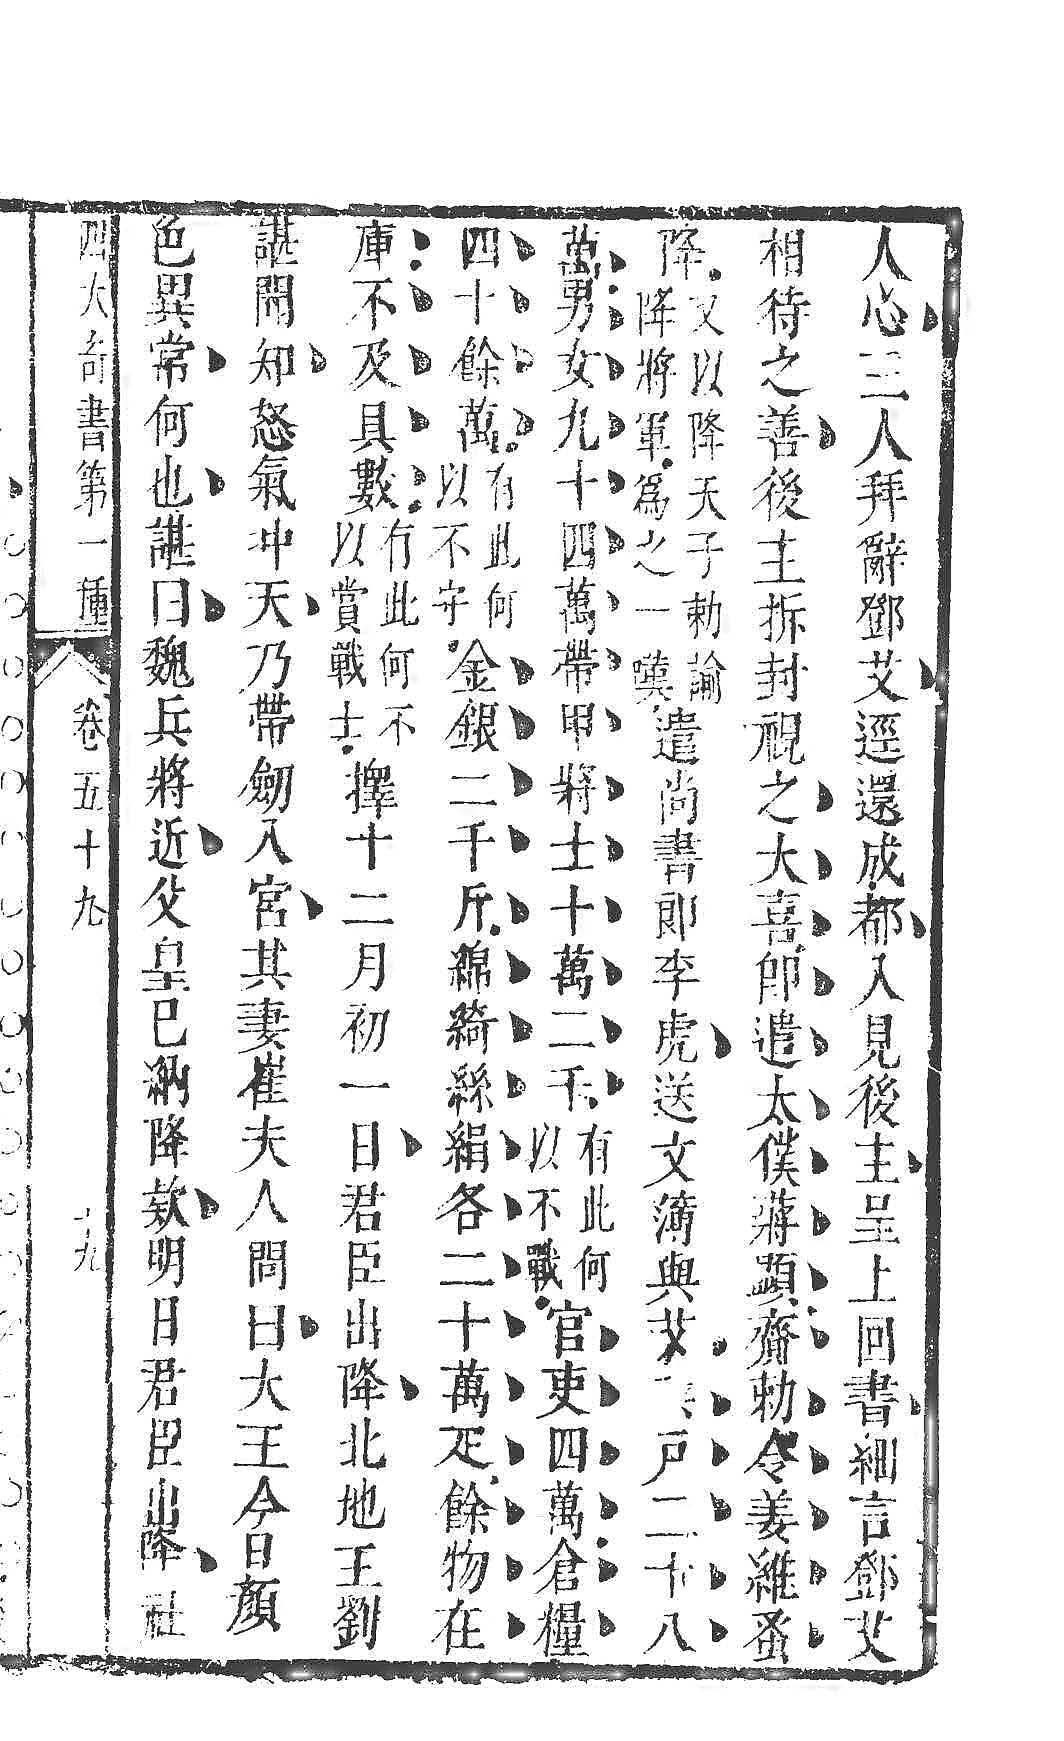 人心三人拜辭鄧艾逕還成都入見後主呈上回書細言鄧艾
相待之善後主拆封視之大喜卽遣太僕蔣顯齎勅令姜維蚤
降又以降天子勅諭降將軍爲之一嘆遣尚書郎李虎送文簿與艾戸二十八
萬男女九十四萬帶甲將士十萬二千有此何以不戰官吏四萬倉糧
四十餘萬有此何以不守金銀二千斤綿綺絲絹各二十萬疋餘物在
庫不及具數有此何不以賞戰士擇十二月初一日君臣出降北地王劉
諶聞知怒氣冲天乃帶劒入宮其妻崔夫人問曰大王今日顏
色異常何也諶曰魏兵將近父皇已納降欵明日君臣出降社
四大奇書第一種 卷五十九 十九